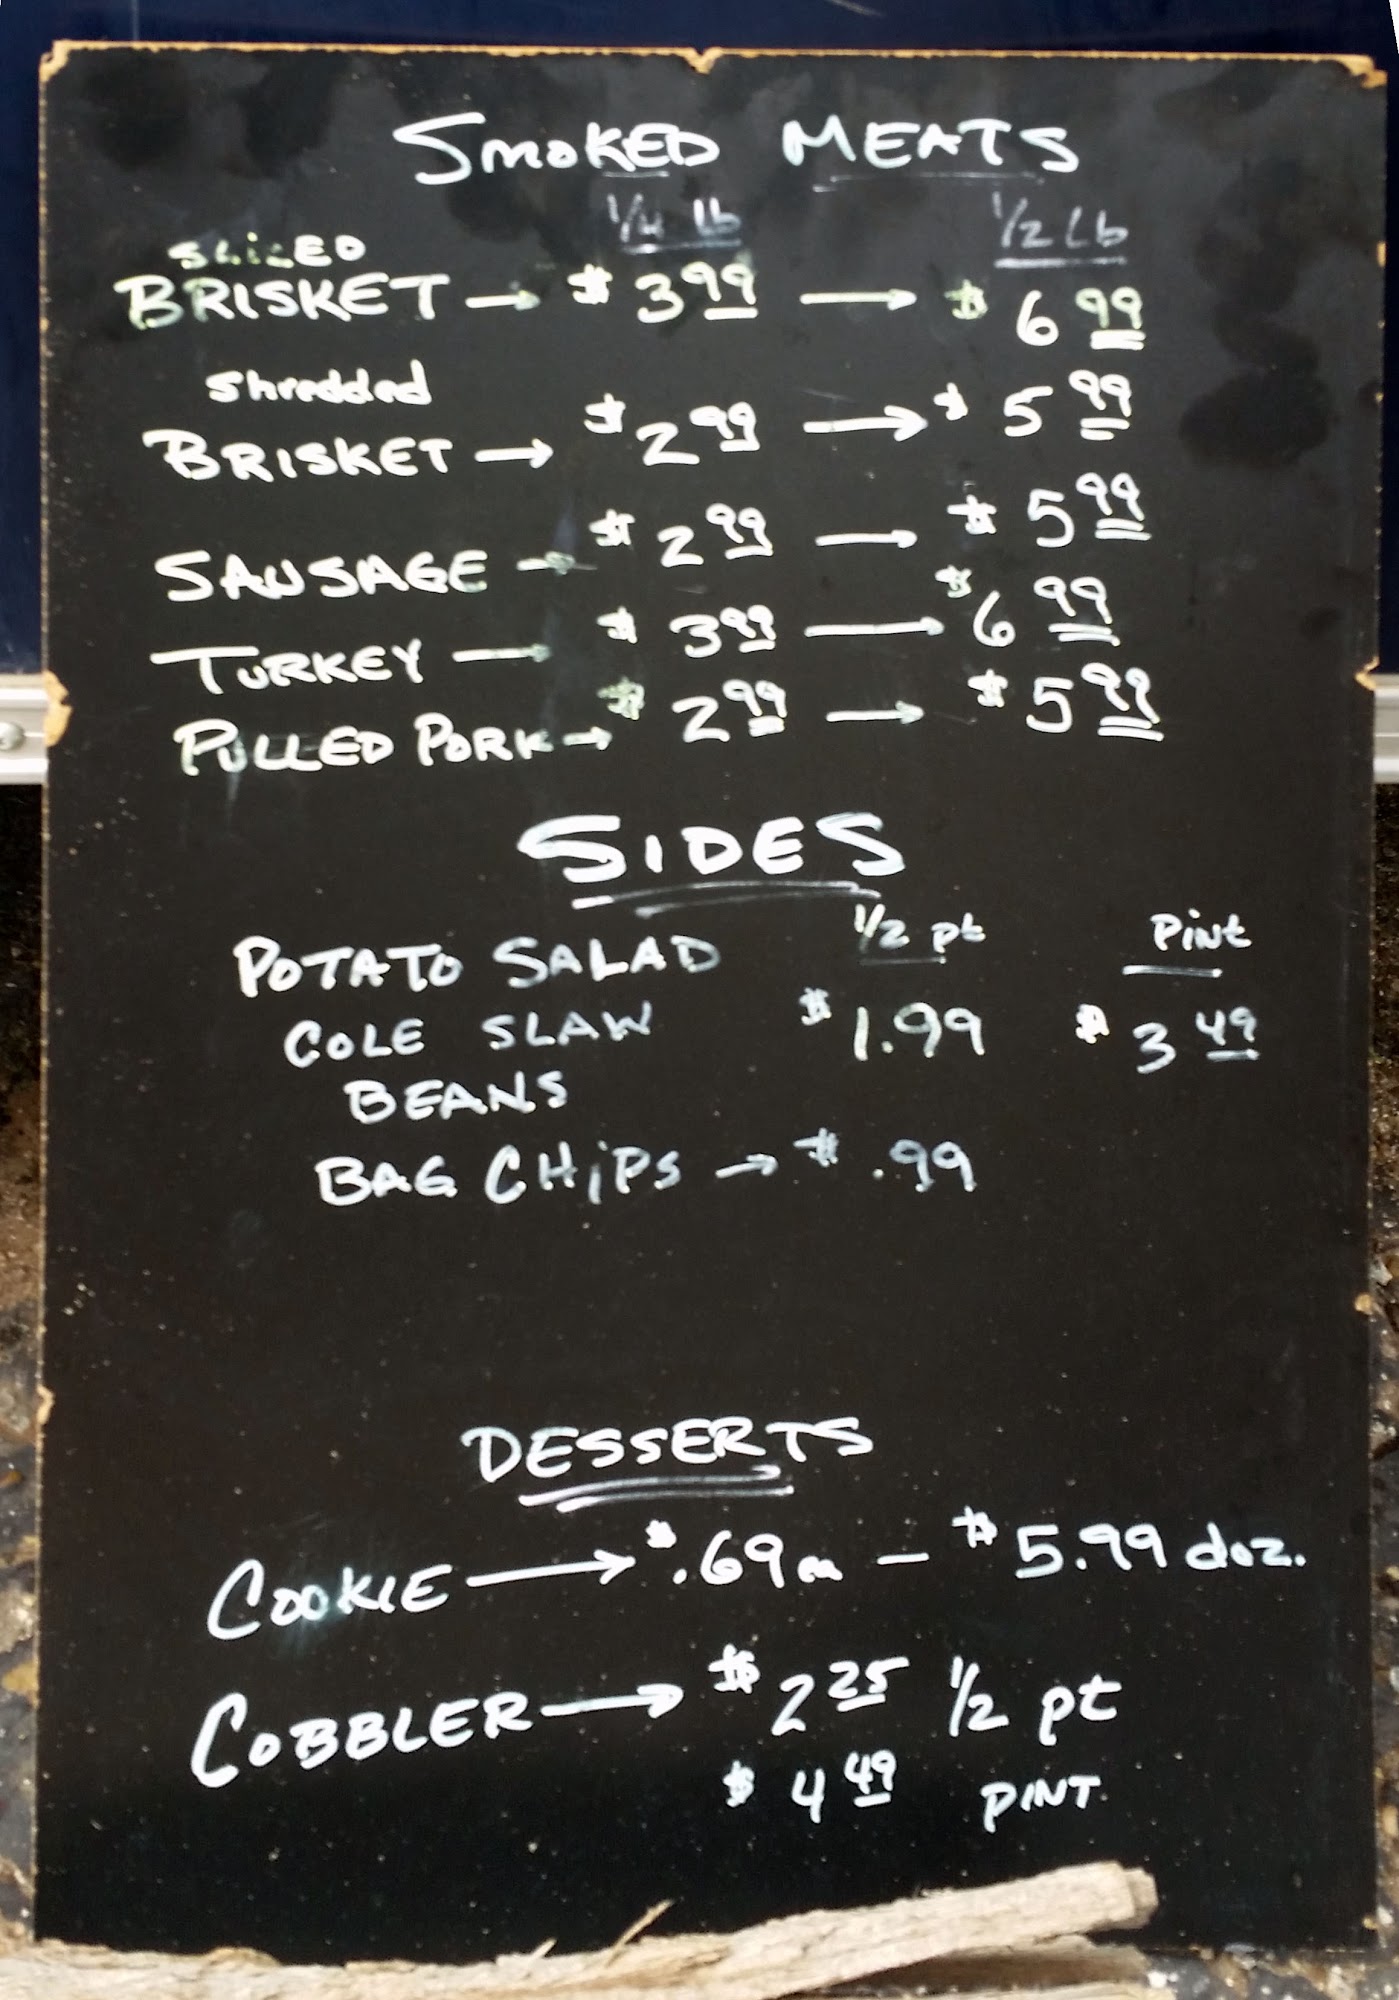 SMOKED MEATS
1/4 lb 1/2 Lb
SLICED
BRISKET → $ 3 99 → $ 6 99
shredded
BRISKET → $ 2 99 → $ 5 99
SAUSAGE → $ 2 99 → $ 5 99
TURKEY → $ 3 99 → $ 6 99
PULLED PORK → $ 2 99 → $ 5 99
SIDES
POTATO SALAD 1/2 pt PINt
COLE SLAW $ 1.99 $ 3 49
BEANS
BAG CHiPS → $ .99
DESSERTS
COOKIE → $ .69 ea — $ 5.99 doz.
COBBLER → $ 2 25 1/2 pt
$ 4 49 PINT